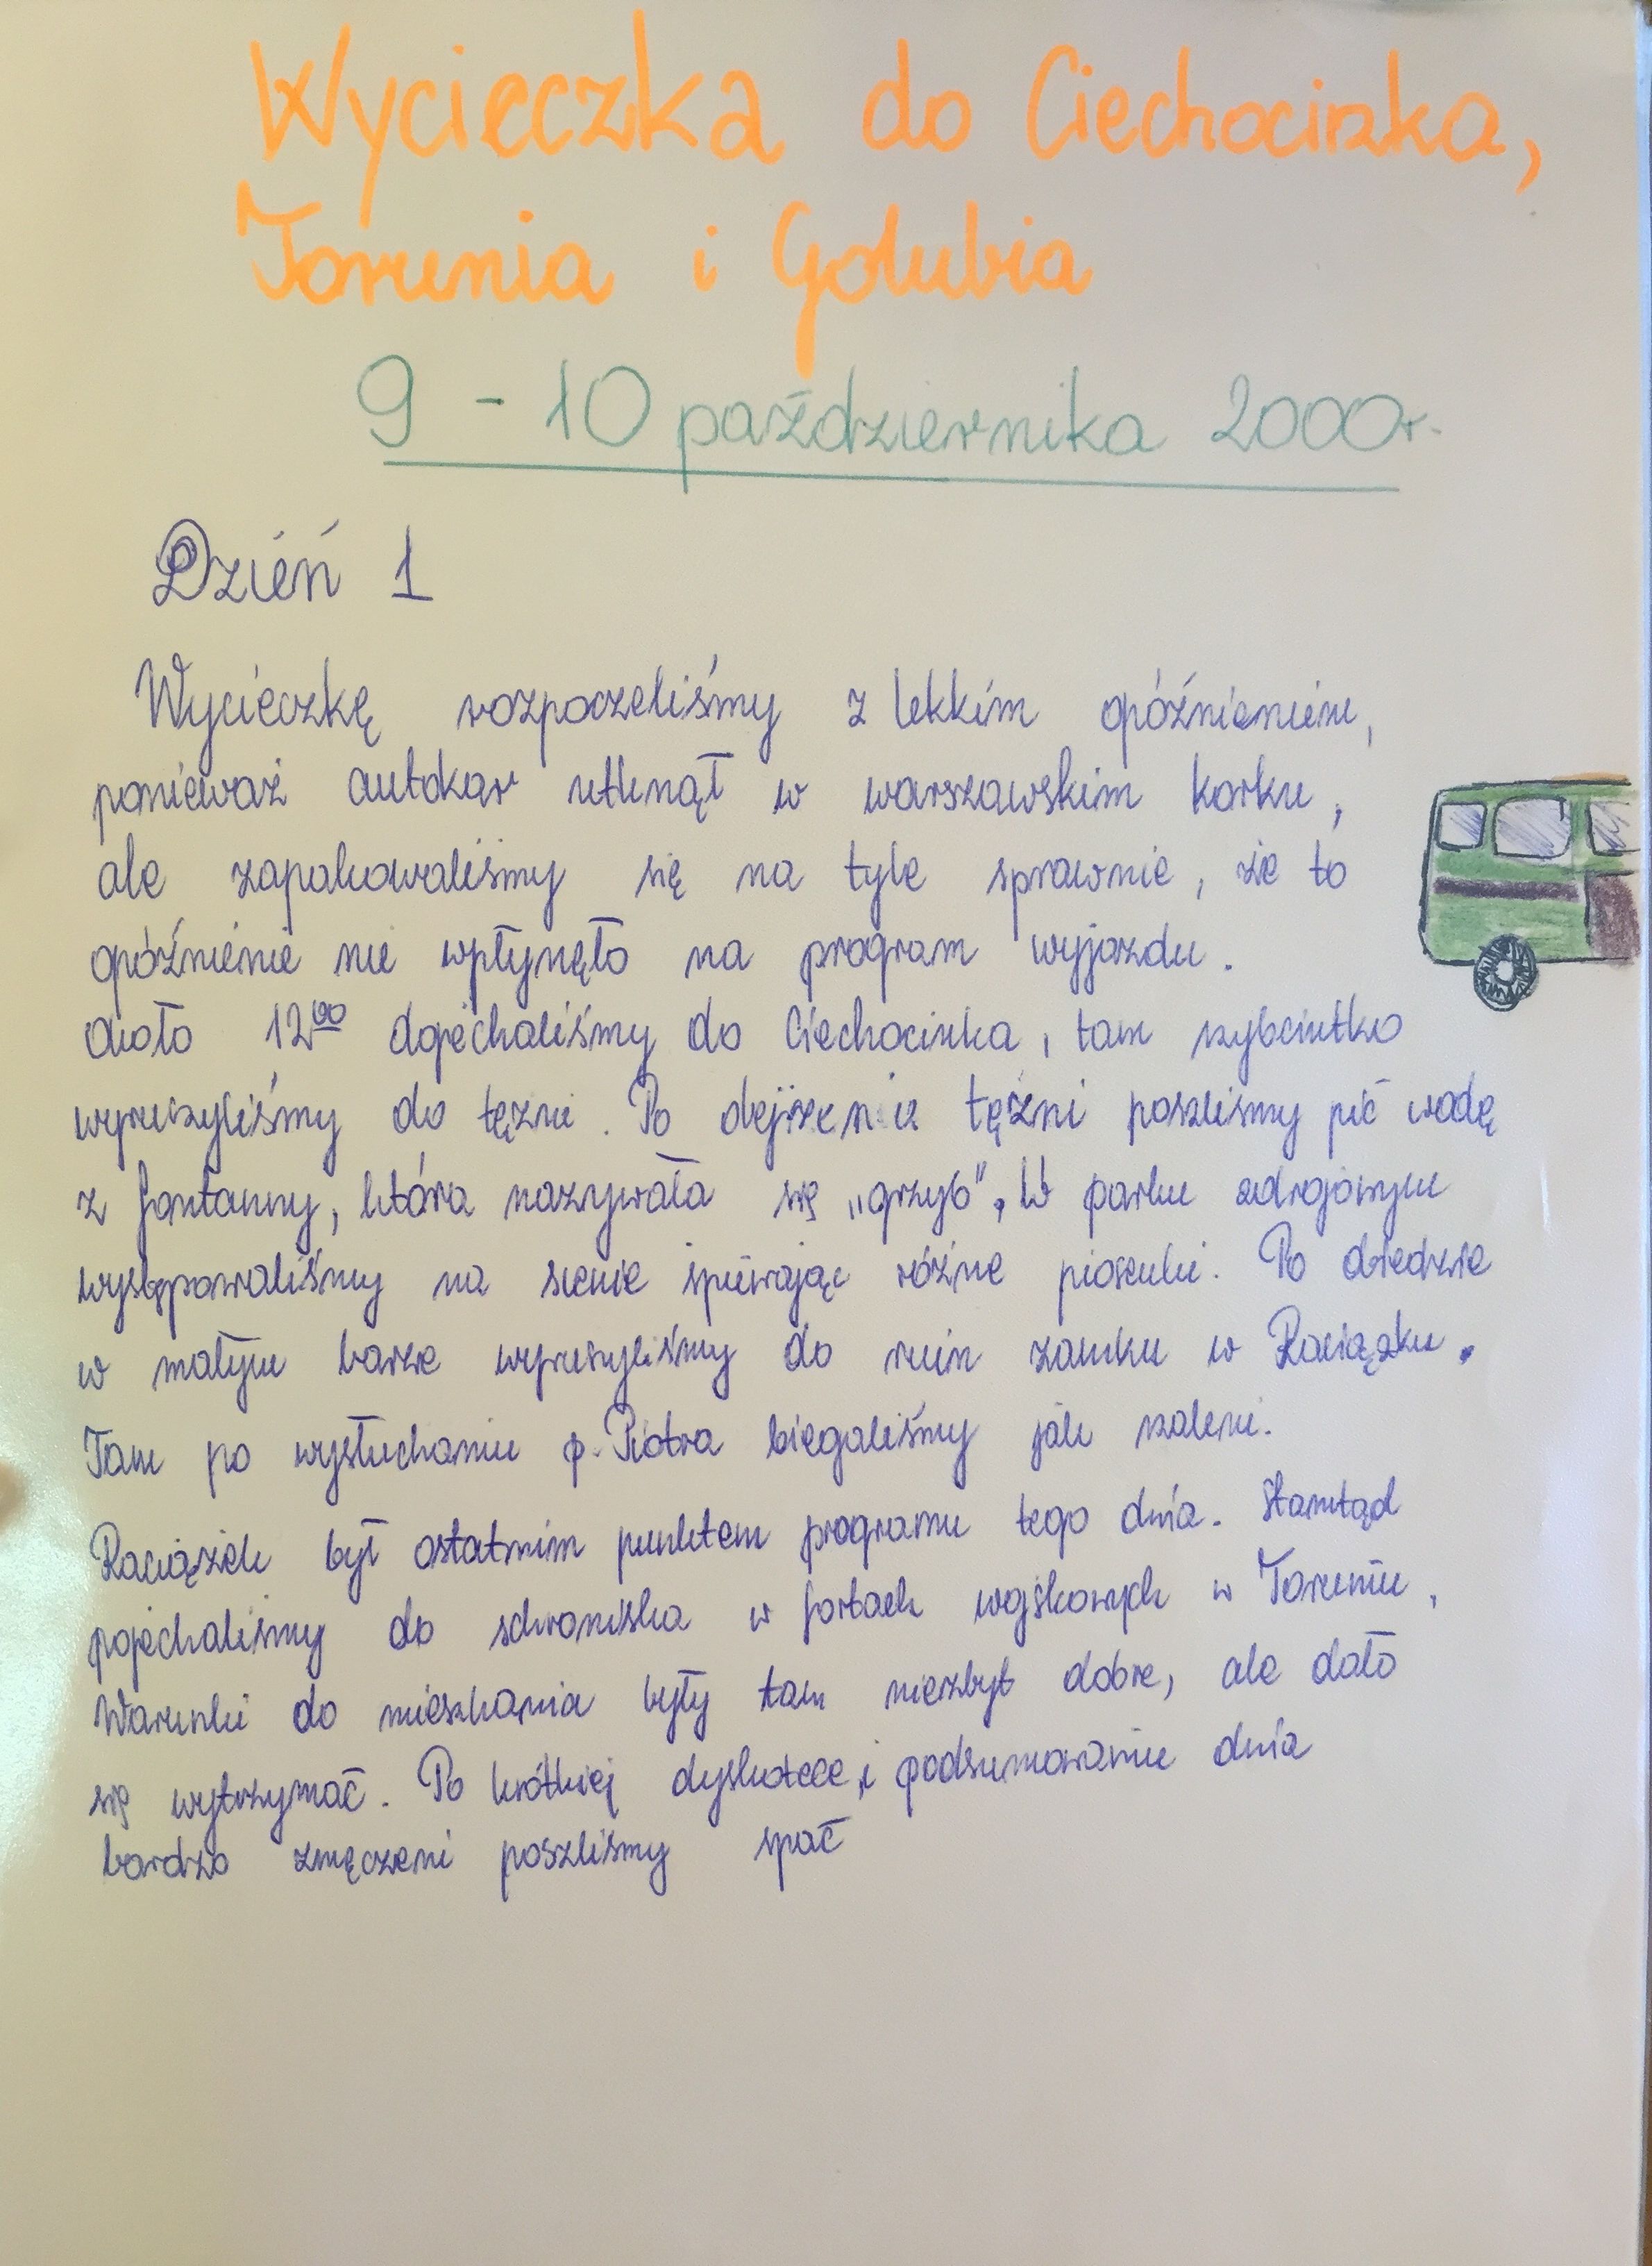 Wycieczka do Ciechocinka,
Torunia i Golubia
9 - 10 października 2000r.
Dzień 1
Wycieczkę rozpoczeliśmy z lekkim opóźnieniem,
ponieważ autokar utknął w warszawskim korku,
ale zapakowaliśmy się na tyle sprawnie, że to
opóźnienie nie wpłynęło na program wyjazdu.
około 12⁰⁰ dojechaliśmy do Ciechocinka, tam szybciutko
wyruszyliśmy do tężni. Po dejżeniu tężni poszliśmy pić wodę
z fontanny, która nazywała się „grzyb”. W parku zdrojowym
wysępowaliśmy na scenie śpiewając różne piosenki. Po obiedzie
w małym barze wyruszyliśmy do ruin zamku w Raciążku.
Tam po wysłuchaniu p. Piotra biegaliśmy jak szaleni.
Raciążek był ostatnim punktem programu tego dnia. Stamtąd
pojechaliśmy do schroniska w fortach wojskowych w Toruniu.
Warunki do mieszkania były tam niezbyt dobre, ale dało
się wytrzymać. Po krótkiej dyskotece i podsumowaniu dnia
bardzo zmęczeni poszliśmy spać